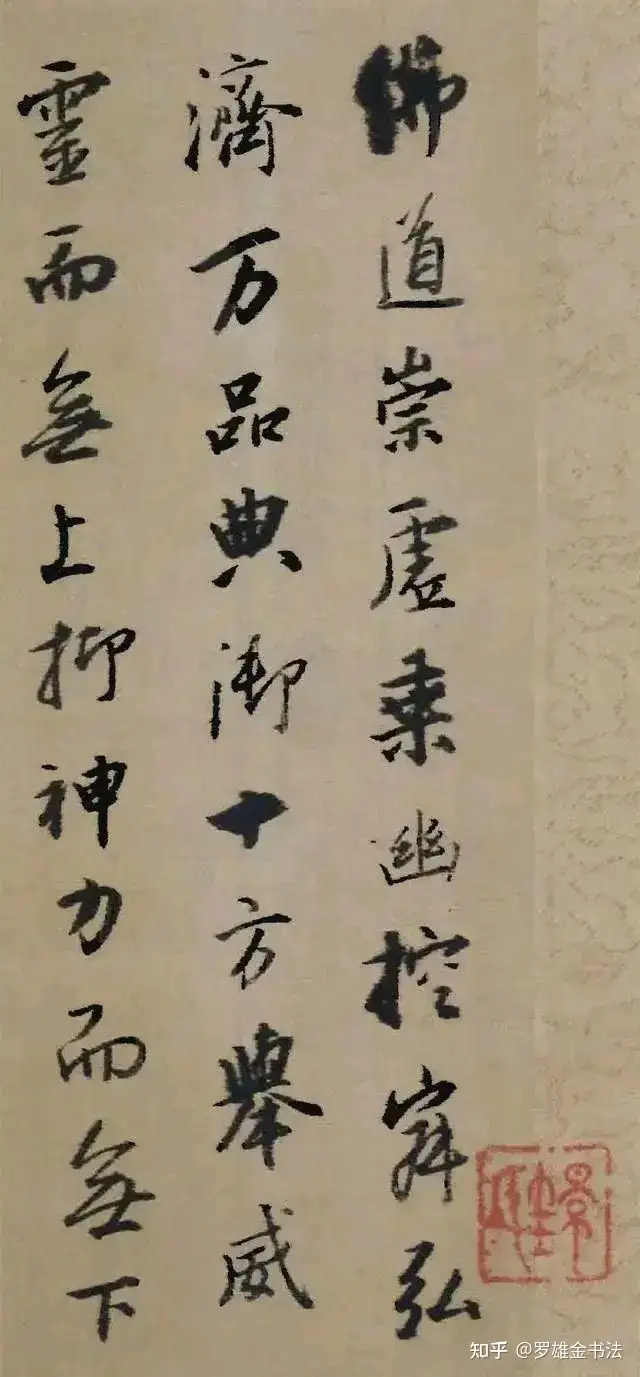 佛道崇虛乘幽控寂弘
濟万品典御十方舉威
靈而無上抑神力而無下
知乎 @罗雄金书法